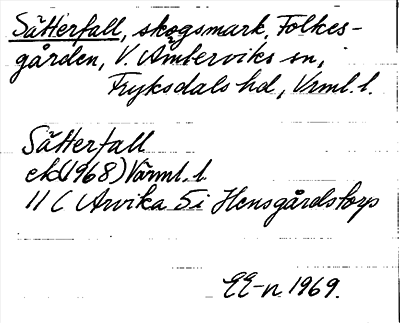 Sätterfall, skogsmark, Folkes-
gården, V. Ämterviks sn,
Fryksdals hd, Vrml. l.
Sätterfall
ek(1968) Värml. l.
11 C Arvika 5i Hensgårdstorp
EE-n 1969.